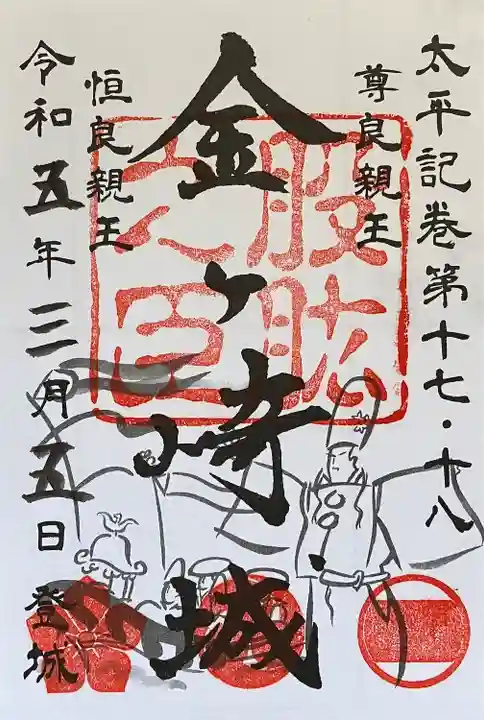 太平記巻第十七・十八
尊良親王
金ヶ崎城
恒良親王
令和五年三月五日 登城
股肱之臣